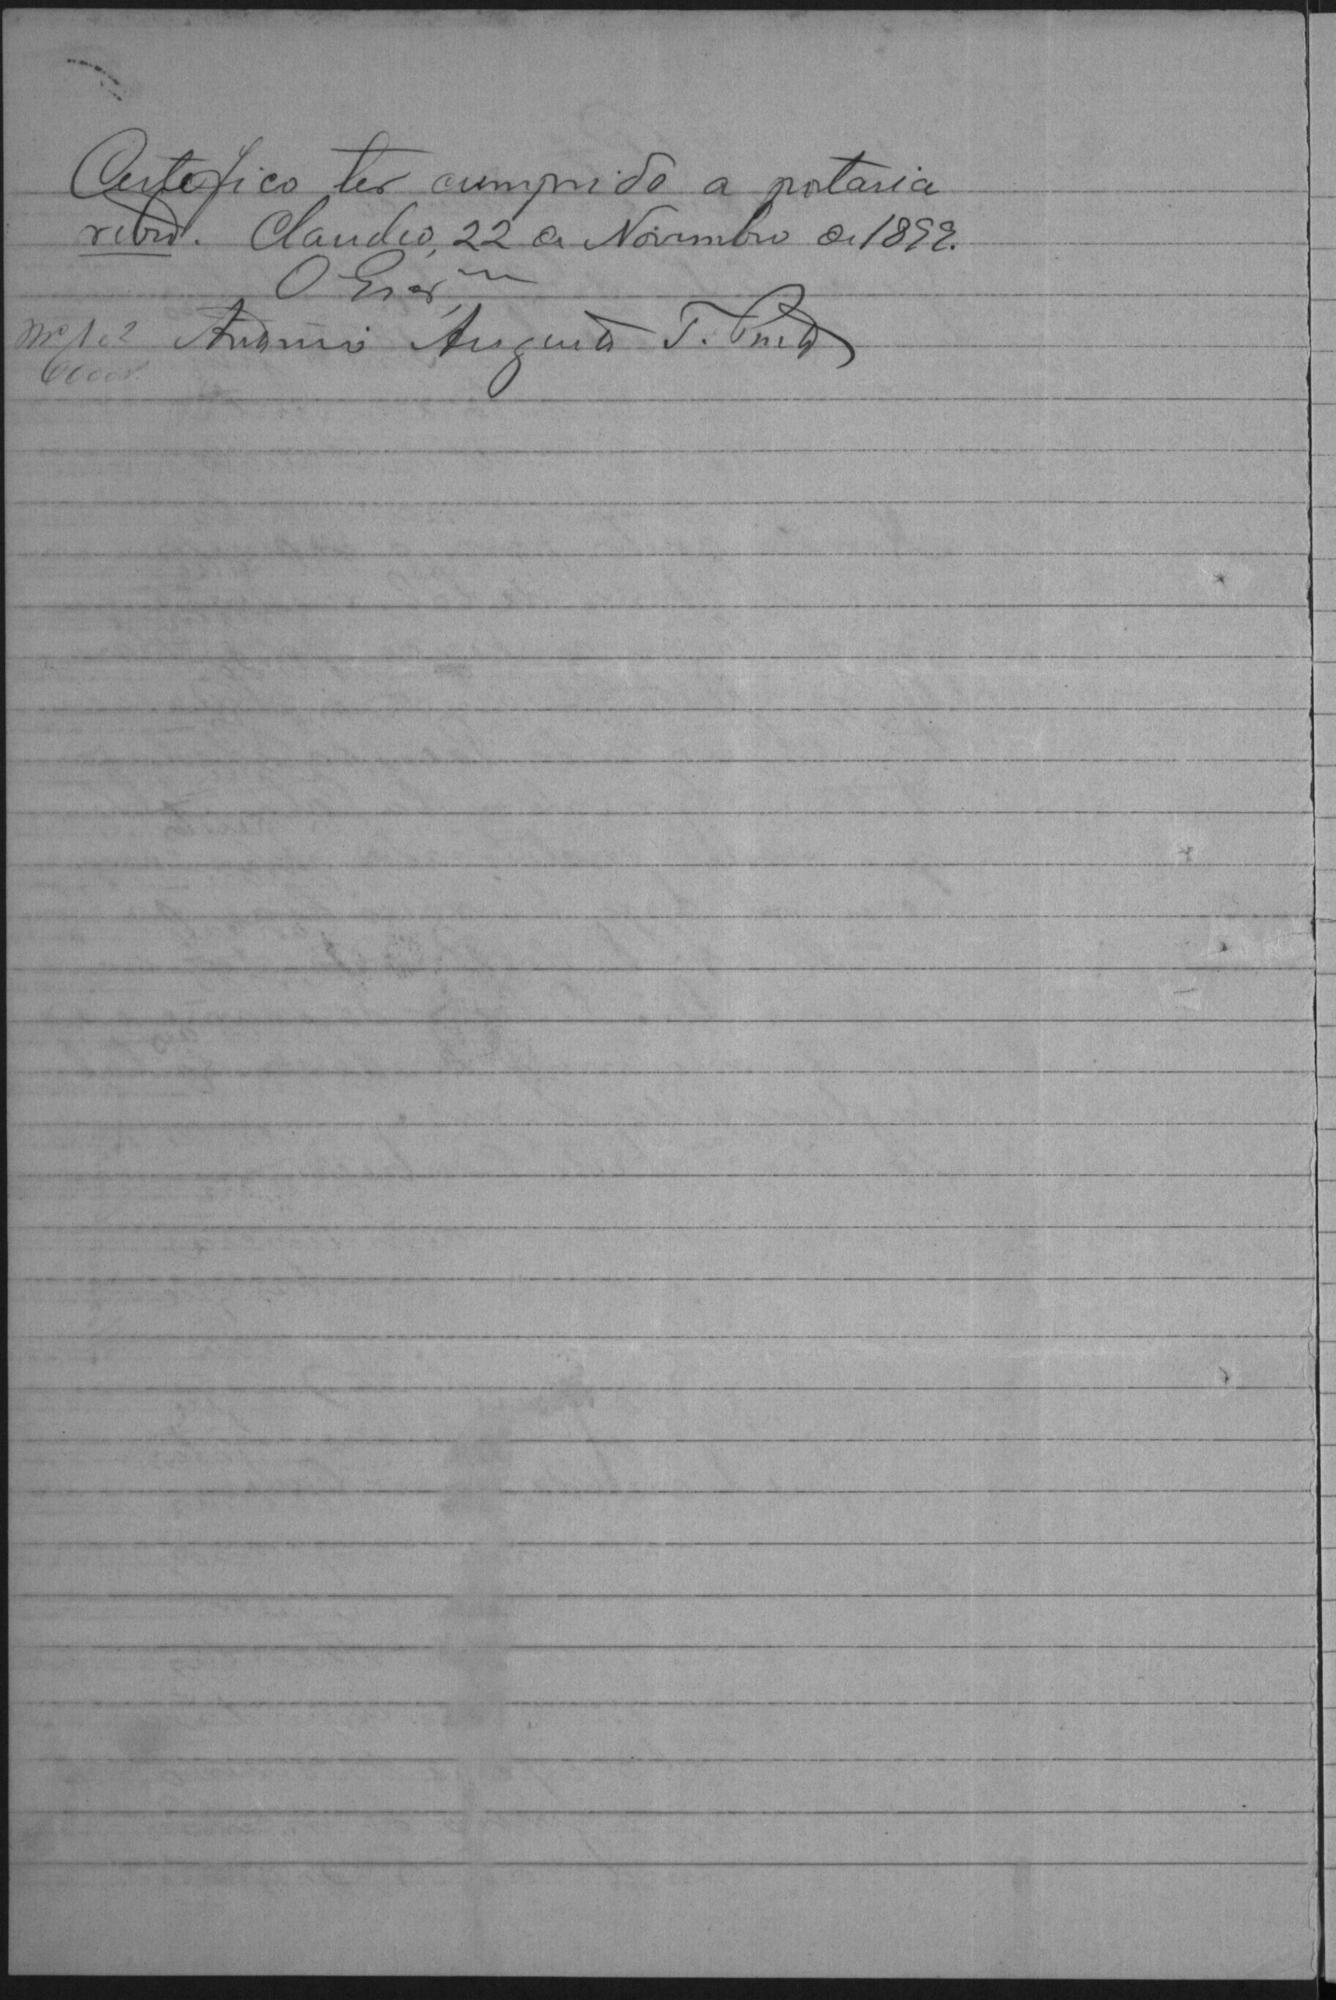 Certefico ter cumprido a portaria
retro. Claudio, 22 de Novembro de 1899.
O Escr.m
Antonio Augusto T.